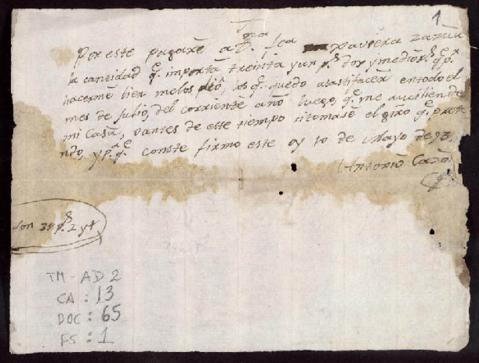 1
Por este pagaré a
la cantidad q.e importa treinta y un p.s dos y medio r.s q.e p.r
hacerme bien me los dió, los q.e quedo a satisfacer en todo el
mes de Julio, del corriente año luego q.e me auciliende
mi Casa, o antes de este tiempo si tomase el giro q.e preten
do, y p.a q.e conste firmo este oy 10 de Mayo de
Antonio
Son 31 p.s 2 y
TM-AD 2
CA: 13
DOC: 65
FS: 1